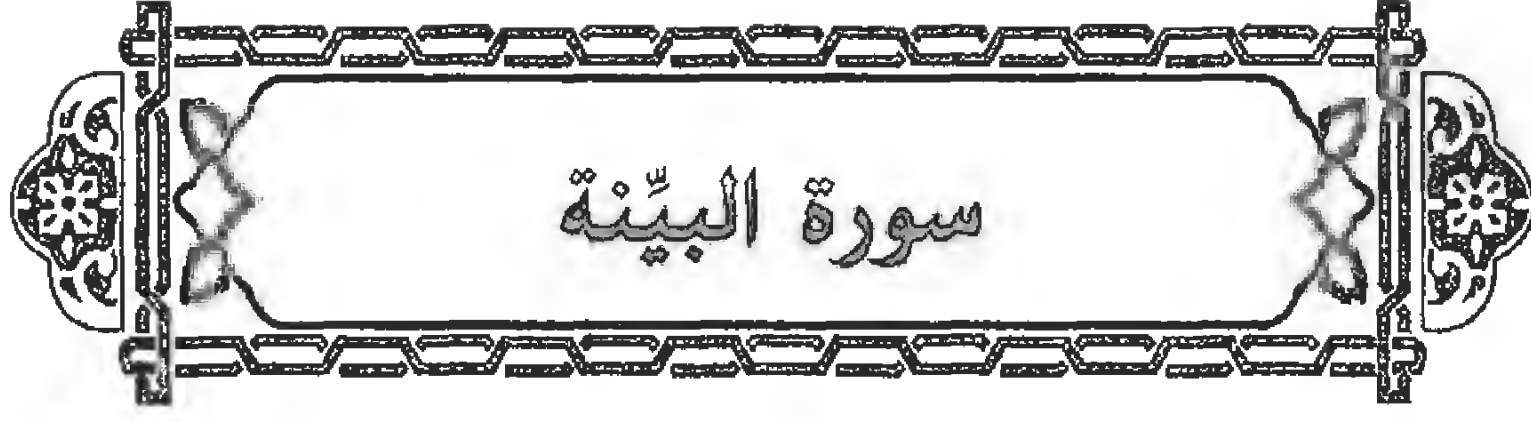 سورة البيّنة